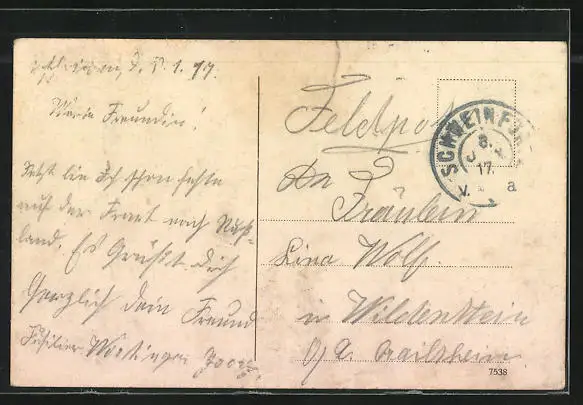 Schweinf, d. 8.1.17.
Werte Freundin!
Jetzt bin Ich schon heute
auf der Front nach Ruß-
land. Es Grüßt Dich
Herzlich dein Freund
Füsilier Georg.
Feldpost
SCHWEINFUR
8. J
17.
V. a
An
Fräulein
Lina Wolf.
in Wildenstein
O/A. Crailsheim
7538